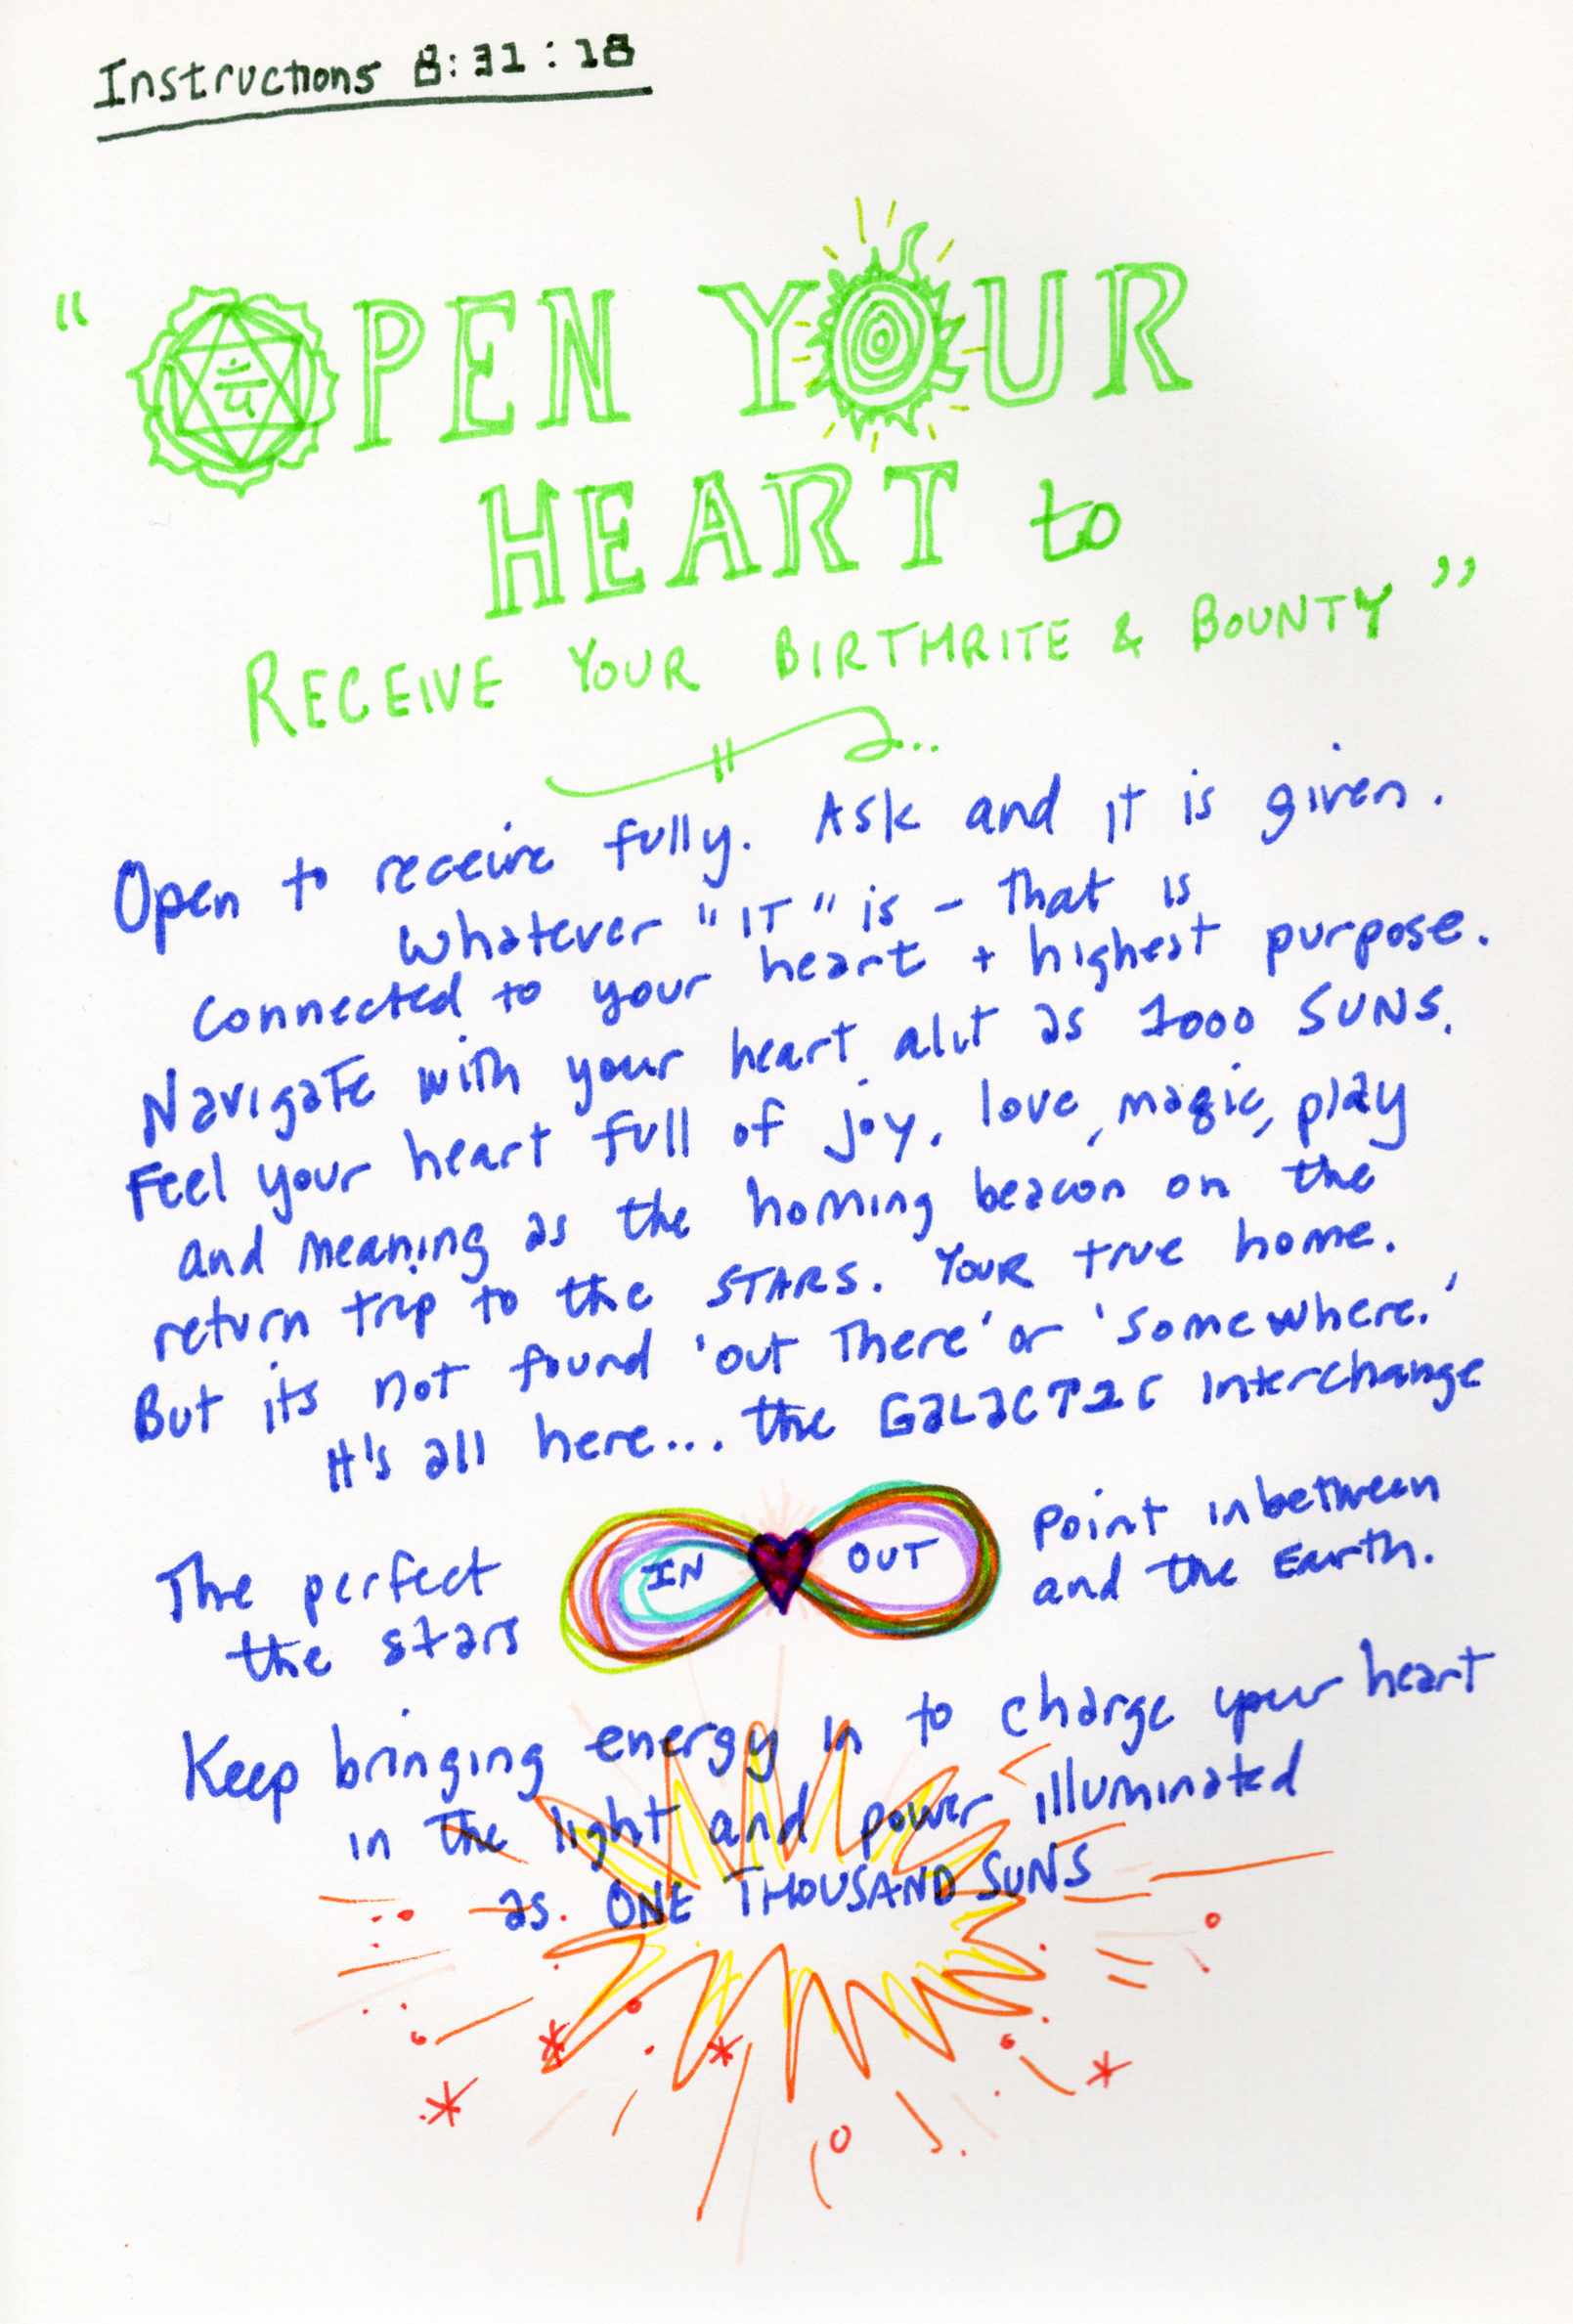 Instructions 8:31:18
"OPEN YOUR
HEART to
RECEIVE YOUR BIRTHRITE & BOUNTY"
Open to receive fully. Ask and it is given.
Whatever "IT" is - that is
connected to your heart + highest purpose.
Navigate with your heart alit as 1000 SUNS.
Feel your heart full of joy, love, magic, play
and meaning as the homing beacon on the
return trip to the STARS. YOUR true home.
But its not found 'out there' or 'somewhere.'
It's all here... the GALACTIC Interchange
The perfect IN OUT point inbetween
the stars and the Earth.
Keep bringing energy in to charge your heart
in the light and power illuminated
as ONE THOUSAND SUNS